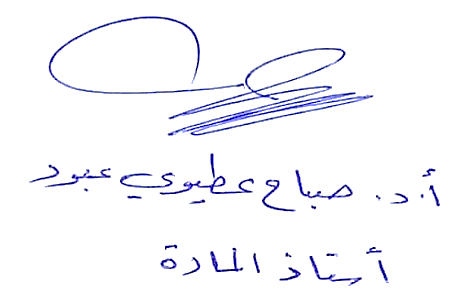 أ.د. صباح عطيوي عبود
أستاذ المادة